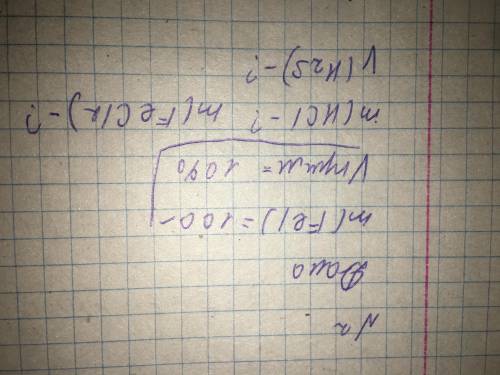 №2
Дано
m(Fe) = 100
Vприм = 10%
m(HCl - ? m(FeCl2) - ?
V(H2S) - ?